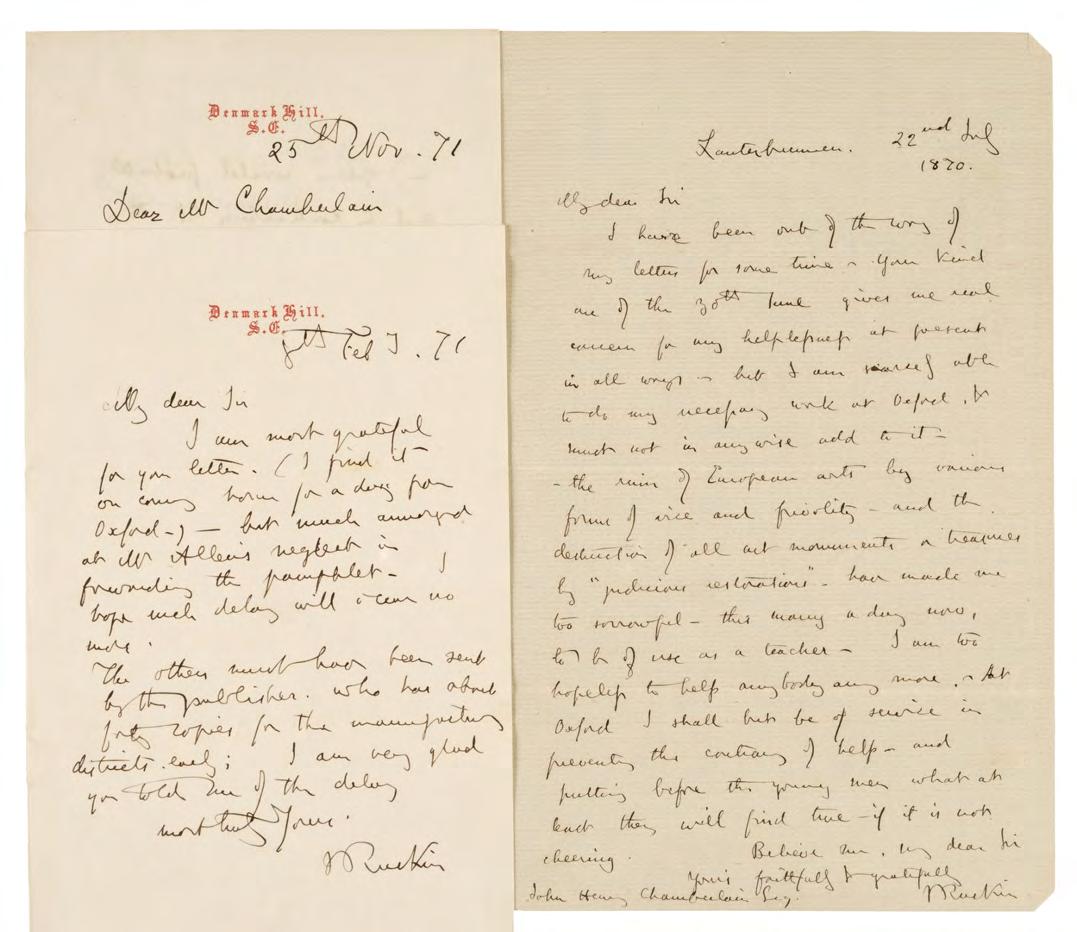 Denmark Hill.
S.E.
25th Nov. 71
Dear Mr Chamberlain
Denmark Hill.
S.E.
Feb 71
My dear Sir
I am most grateful
for your letter. (I find it
on coming home for a day from
Oxford-) - but much annoyed
at Mr Allen's neglect in
forwarding the pamphlet - I
hope such delay will occur no
more.
The others must have been sent
by the publisher. who has about
forty copies for the manufacturing
districts.
I am very glad
you told me of the delay
most truly Yours.
J Ruskin
Lauterbrunnen. 22nd July
1870.
My dear Sir
I have been out of the way of
my letters for some time - Your kind
one of the 30th June gives me real
concern for my helplessness at present
in all ways - but I am scarcely able
to do my necessary work at Oxford, &
must not in anywise add to it -
- the ruin of European arts by various
forms of vice and frivolity - and the
destruction of all art monuments or treasures
by "judicious restorations" - have made me
too sorrowful - this many a day now,
to be of use as a teacher - I am too
hopeless to help anybody any more. - At
Oxford I shall but be of service in
preventing the contrary of help - and
putting before the young men what at
least they will find true - if it is not
cheering. Believe me, my dear Sir
Yours faithfully & gratefully
John Henry Chamberlain Esq. J Ruskin